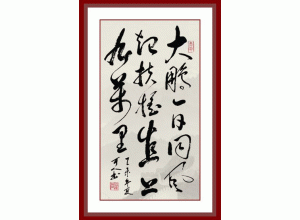 大鹏一日同风
起扶摇直上
九萬里